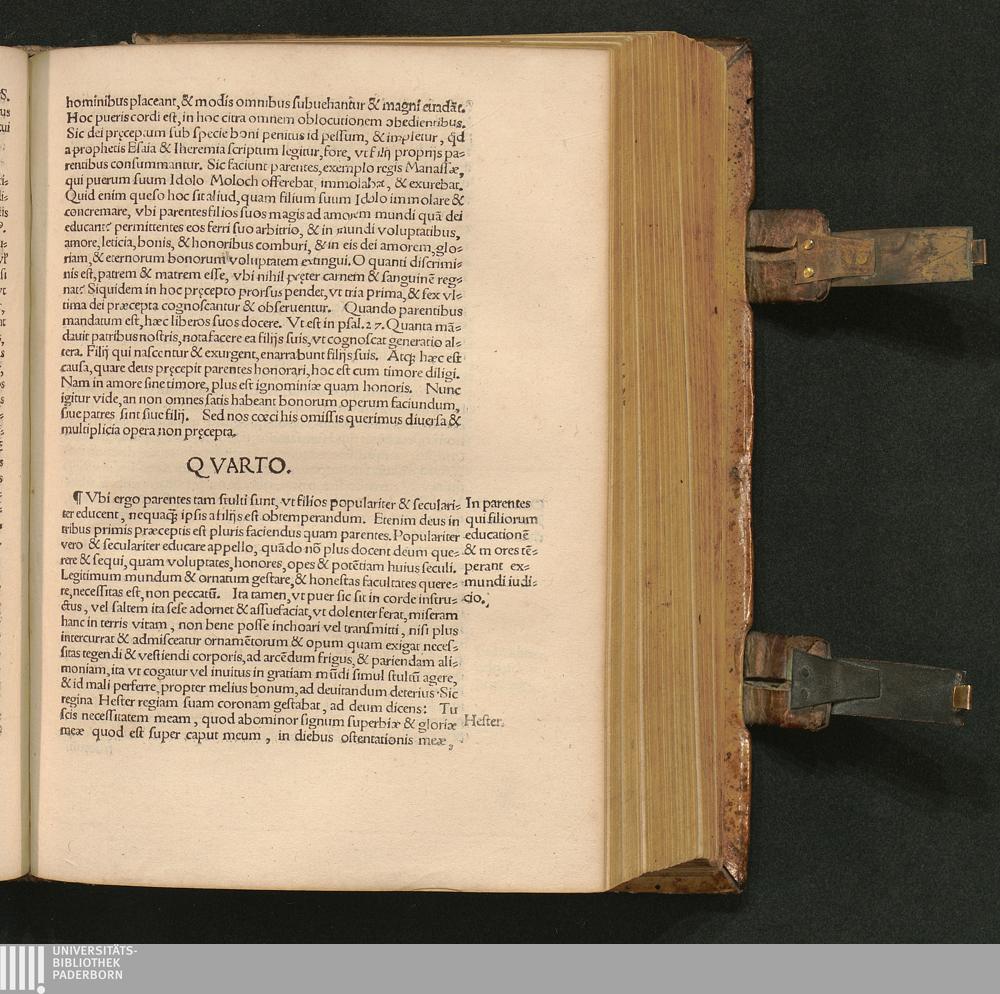 hominibus placeant, & modis omnibus subuehantur & magni euadāt.
Hoc pueris cordi est, in hoc citra omnem oblocutionem obedientibus.
Sic dei pręceptum sub specie boni penitus id pessum, & impletur, qđ
a prophetis Esaia & Iheremia scriptum legitur, fore, vt filij proprijs pa-
rentibus consummantur. Sic faciunt parentes, exemplo regis Manassæ,
qui puerum suum Idolo Moloch offerebat, immolabat, & exurebat.
Quid enim queso hoc sit aliud, quam filium suum Idolo immolare &
concremare, vbi parentes filios suos magis ad amorem mundi quā dei
educant? permittentes eos ferri suo arbitrio, & in mundi voluptatibus,
amore, leticia, bonis, & honoribus comburi, & in eis dei amorem, glo-
riam, & eternorum bonorum voluptatem extingui. O quanti discrimi-
nis est, patrem & matrem esse, vbi nihil pręter carnem & sanguinē reg-
nat? Siquidem in hoc pręcepto prorsus pendet, vt tria prima, & sex vl-
tima dei præcepta cognoscantur & obseruentur. Quando parentibus
mandatum est, hæc liberos suos docere. Vt est in psal. 27. Quanta mā-
dauit patribus nostris, nota facere ea filijs suis, vt cognoscat generatio al-
tera. Filij qui nascentur & exurgent, enarrabunt filijs suis. Atq; hæc est
causa, quare deus pręcepit parentes honorari, hoc est cum timore diligi.
Nam in amore sine timore, plus est ignominiæ quam honoris. Nunc
igitur vide, an non omnes satis habeant bonorum operum faciundum,
siue patres sint siue filij. Sed nos cœci his omissis querimus diuersa &
multiplicia opera non pręcepta.
QVARTO.
¶ Vbi ergo parentes tam stulti sunt, vt filios populariter & seculari-
ter educent, nequaq̄; ipsis a filijs est obtemperandum. Etenim deus in
tribus primis præceptis est pluris faciendus quam parentes. Populariter
vero & seculariter educare appello, quādo nō plus docent deum que-
rere & sequi, quam voluptates, honores, opes & potētiam huius seculi.
Legitimum mundum & ornatum gestare, & honestas facultates quere-
re, necessitas est, non peccatū. Ita tamen, vt puer sic sit in corde instru-
ctus, vel saltem ita sese adornet & assuefaciat, vt dolenter ferat, miseram
hanc in terris vitam, non bene posse inchoari vel transmitti, nisi plus
intercurrat & admisceatur ornamētorum & opum quam exigat neces-
sitas tegendi & vestiendi corporis, ad arcēdum frigus, & pariendam ali-
moniam, ita vt cogatur vel inuitus in gratiam mūdi simul stultū agere,
& id mali perferre, propter melius bonum, ad deuitandum deterius. Sic
regina Hester regiam suam coronam gestabat, ad deum dicens: Tu
scis necessitatem meam, quod abominor signum superbiæ & gloriæ
meæ quod est super caput meum, in diebus ostentationis meæ,
In parentes
qui filiorum
educationē
& mores tē-
perant ex-
mundi iudi-
cio.
Hester.
UNIVERSITÄTS-
BIBLIOTHEK
PADERBORN